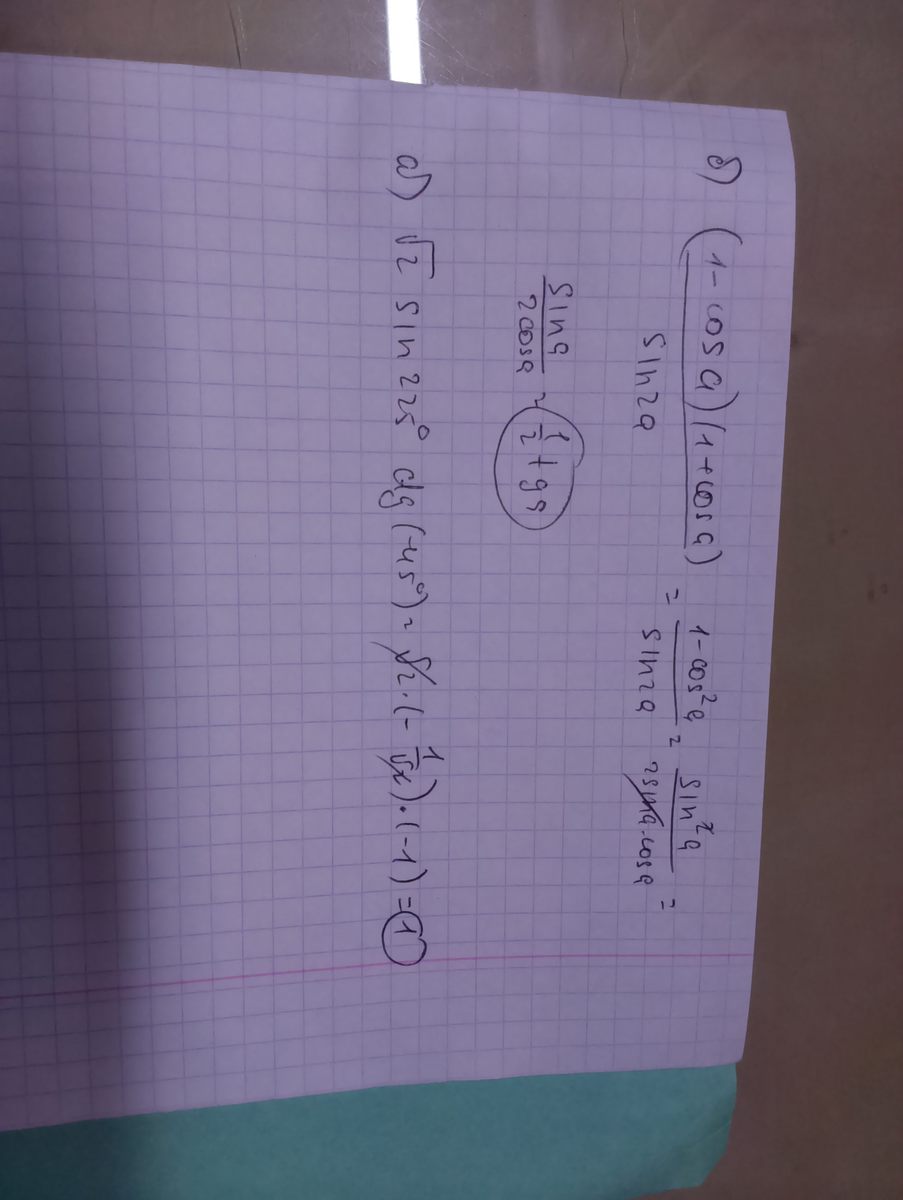 б) (1-cos a)(1+cos a) / sin2a = 1-cos²a / sin2a = sin²a / 2sina·cosa =
sin a / 2cosa = 1/2 tg a
а) √2 sin 225° ctg (-45°) = √2 · (- 1/√2) · (-1) = 1